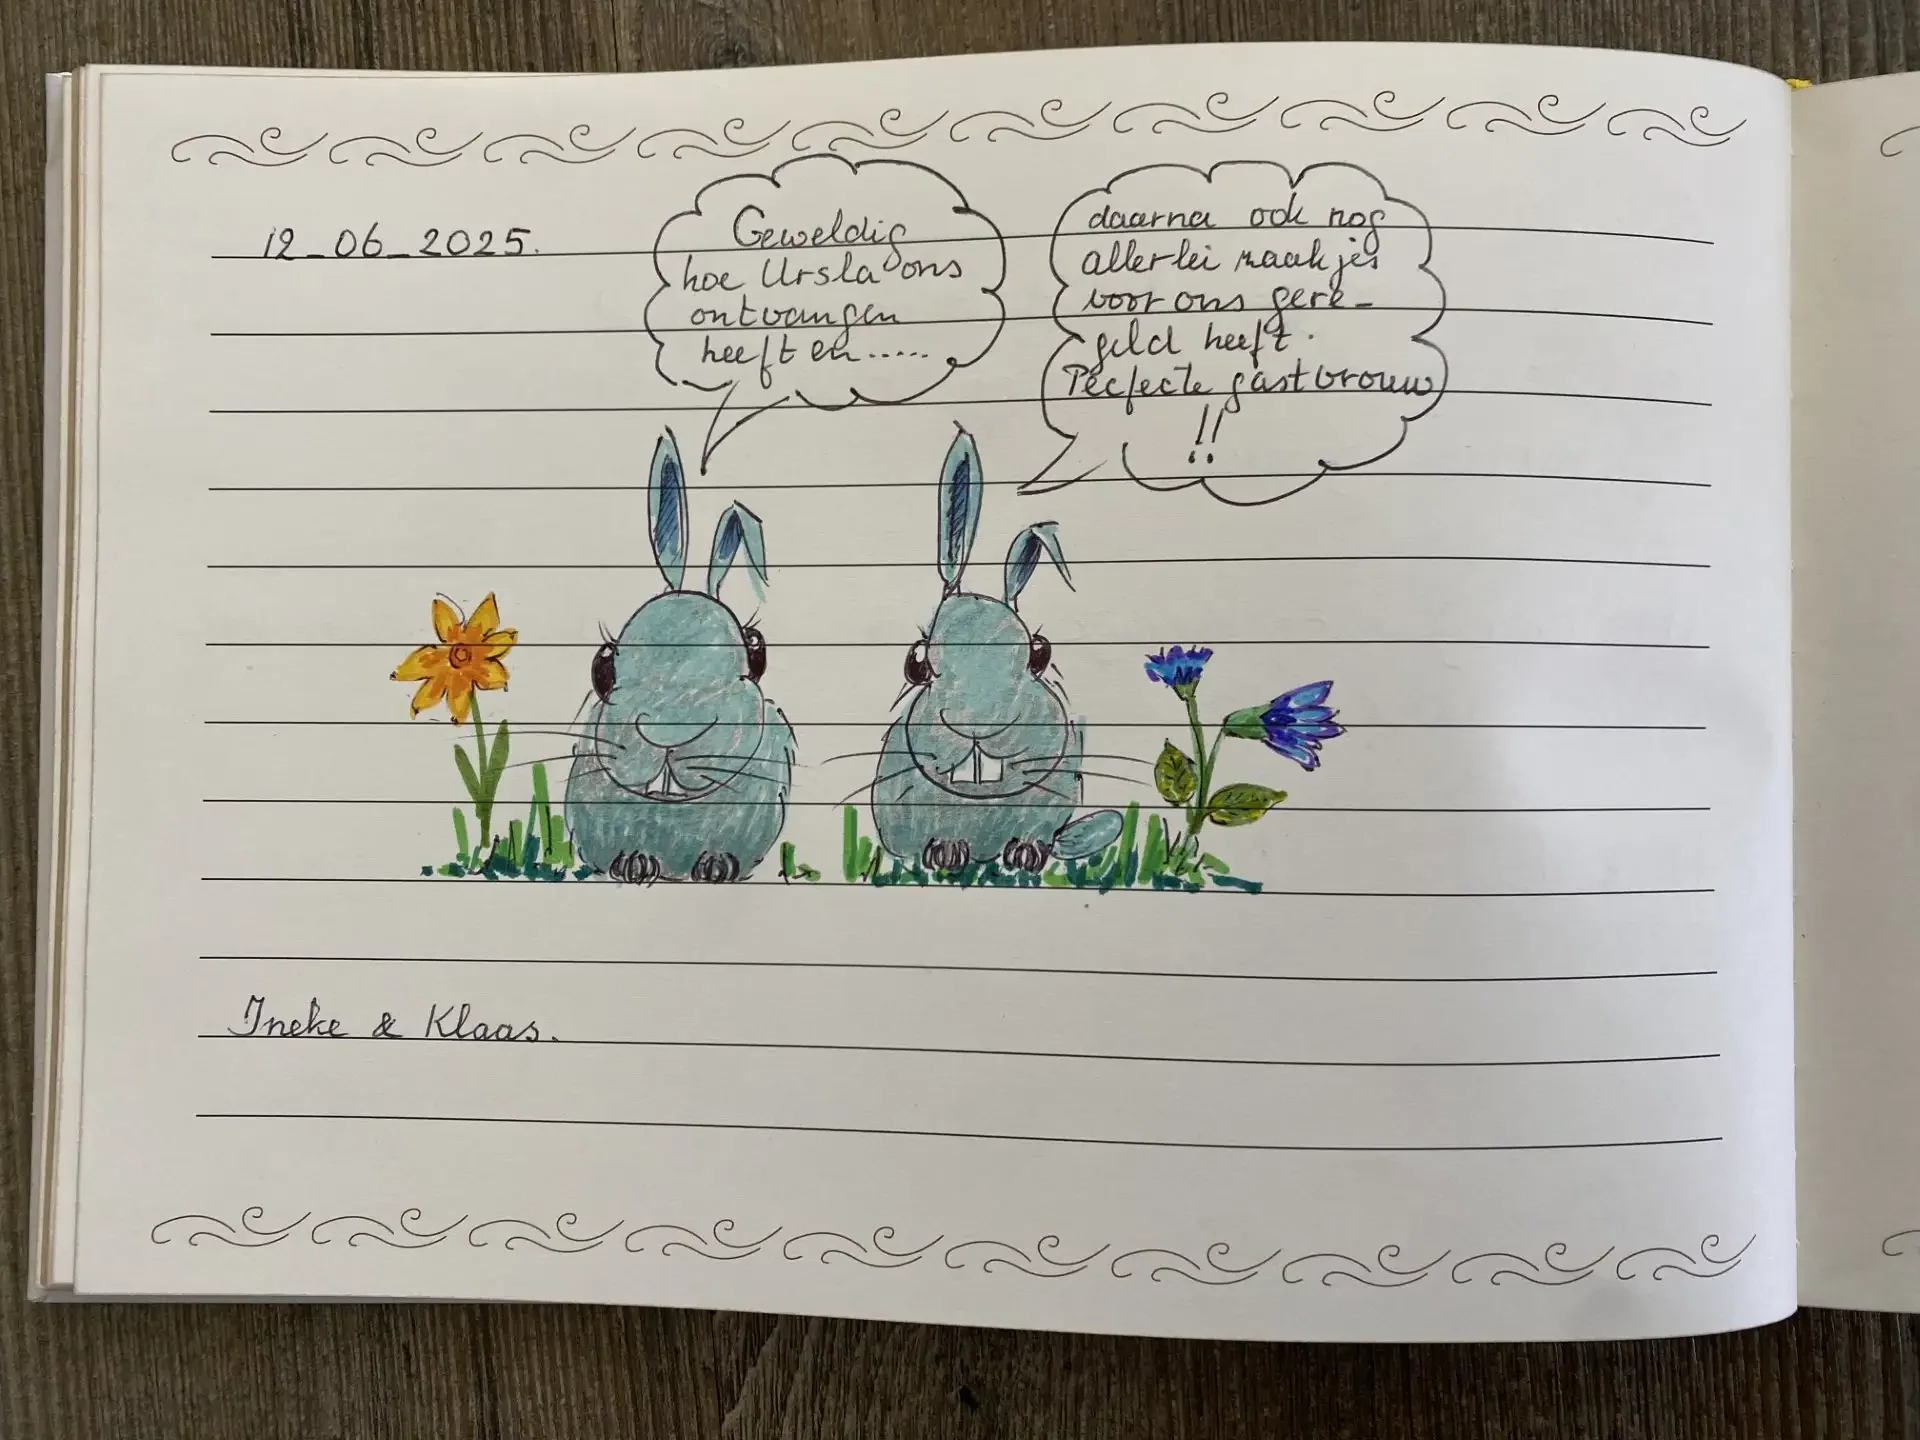 12_06_2025.
Geweldig
hoe Ursla ons
ontvangen
heeft en.....
daarna ook nog
allerlei zaakjes
voor ons gere_
geld heeft.
Perfecte gastvrouw
!!
Ineke & Klaas.